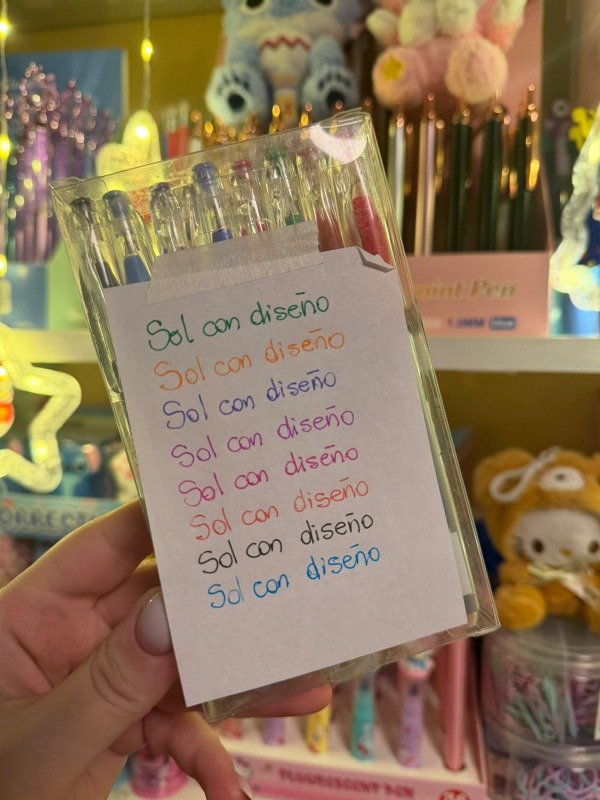 Sol con diseño
Sol con diseño
Sol con diseño
Sol con diseño
Sol con diseño
Sol con diseño
Sol con diseño
Sol con diseño
Paint Pen
1.0MM blue
CORRECT
FLUORESCENT PEN